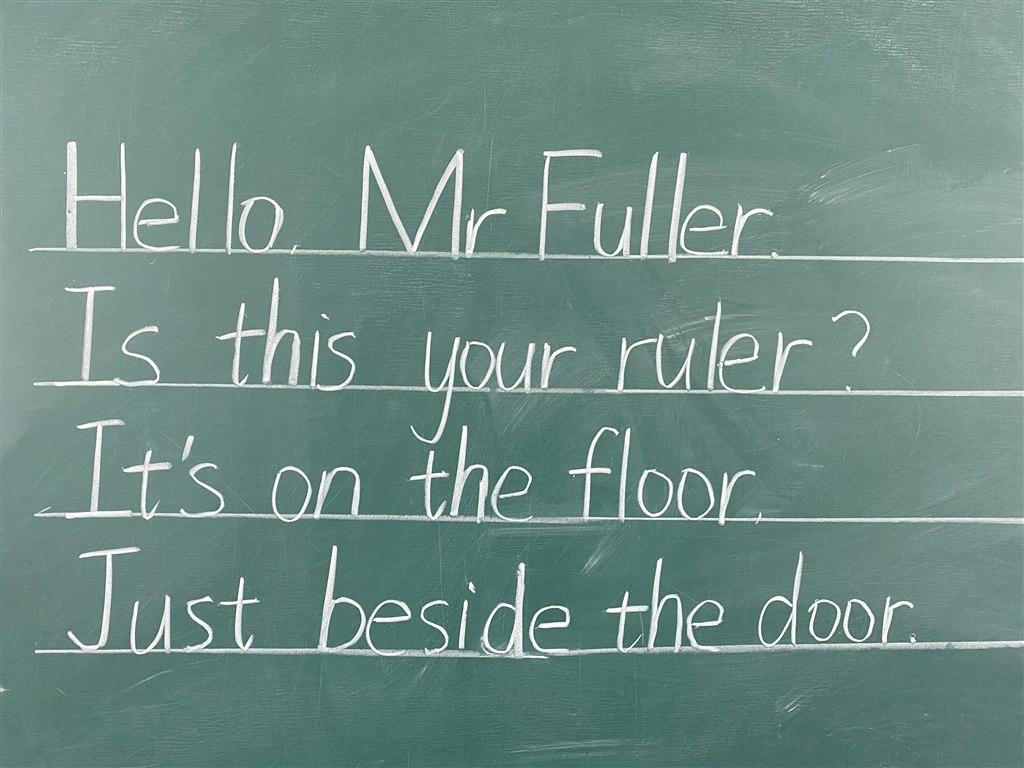 Hello, Mr Fuller.
Is this your ruler?
It's on the floor,
Just beside the door.